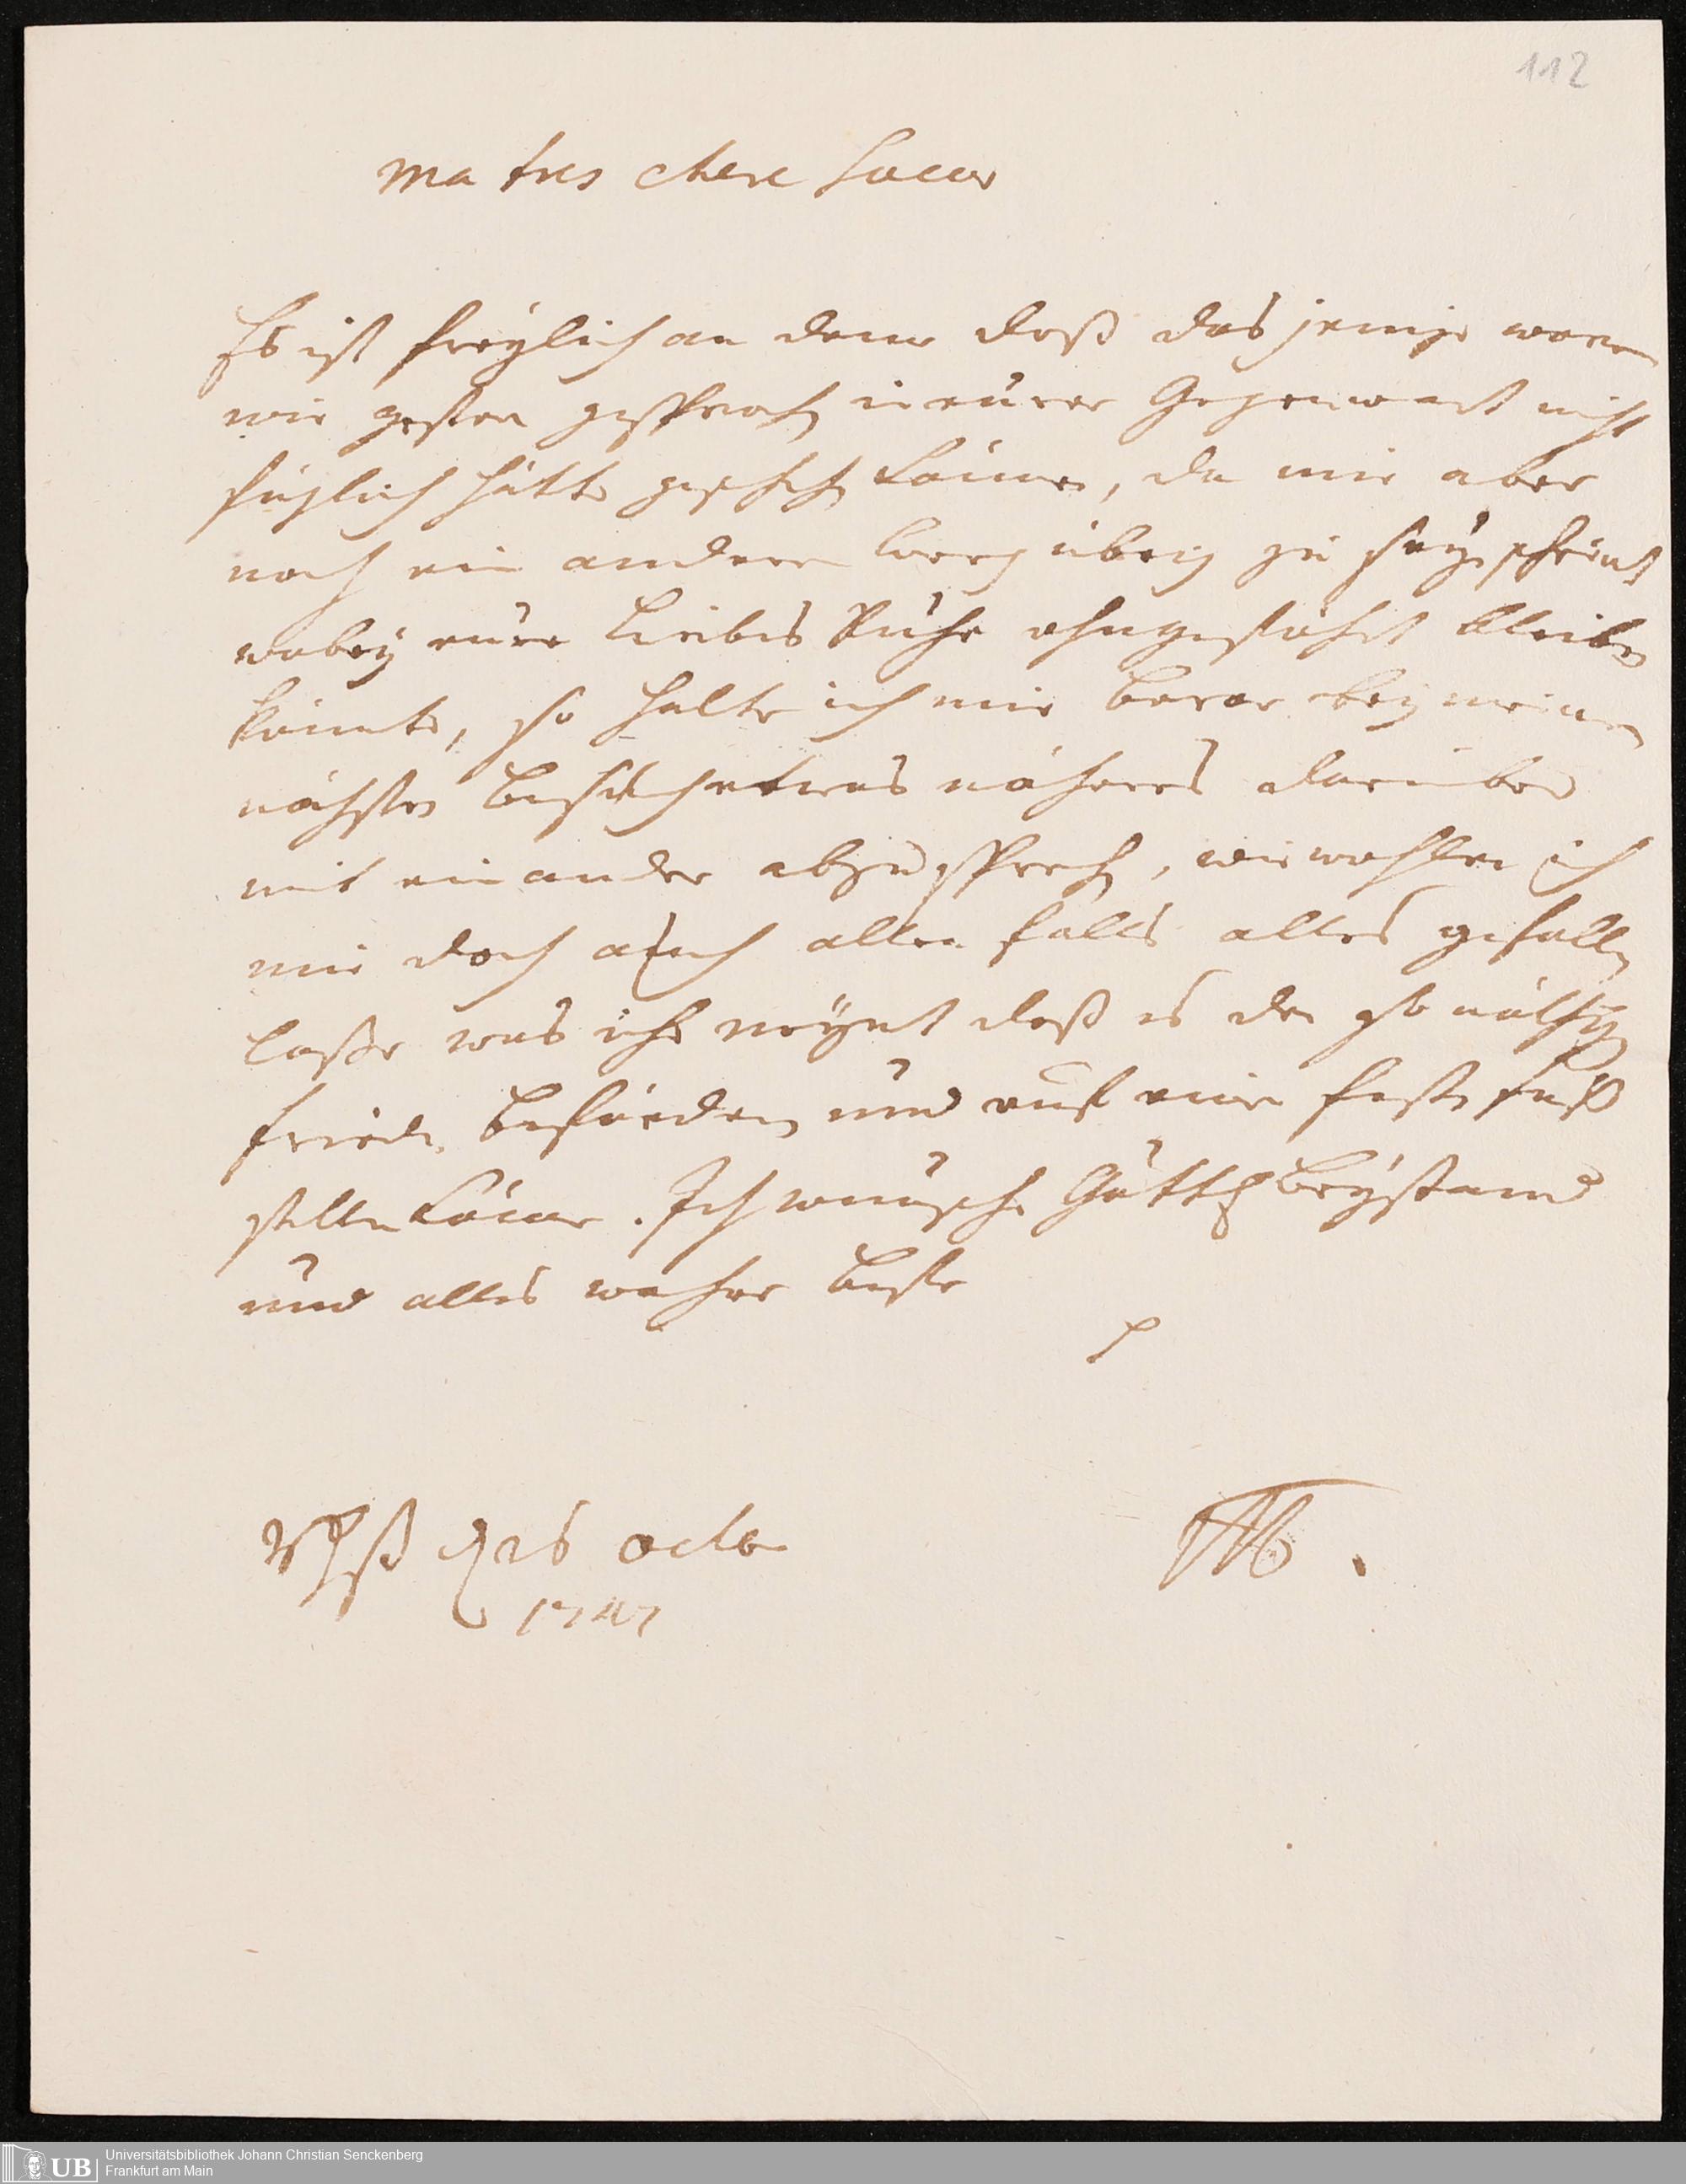 112
Ma tres chere Soeur
Es ist freÿlich an deme daß das jenige wovon
wir gestern gesproch in eurer Gegenwart nicht
füglich hätte gescheh können, da mir aber
noch ein anderer weeg übrig zu seÿn scheint
wobeÿ eure Leibes Ruhe ohngestöhrt bleiben
könnte, so halte ich mir bevor beÿ meinem
nächsten Besuch etwas näheres darüber
mit einander abzusprech, wie wohlen ich
mir doch auch allen falls alles gefallen
lasse was ihr meÿnt daß es den so nöthig
frieden befördern und auf einen festen fuß
stellen könne. Ich wünsche Göttl Beÿstand
und alles wahre Beste
d 26 octbr
1747